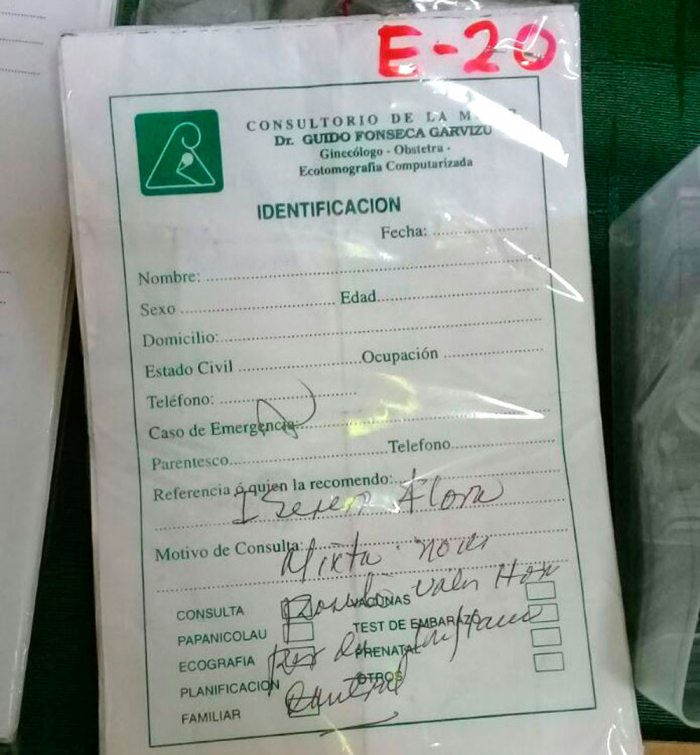 E-20
CONSULTORIO DE LA
Dr. GUIDO FONSECA GARVIZU
Ginecólogo - Obstetra -
Ecotomografía Computarizada
IDENTIFICACION
Fecha:
Nombre:
Sexo Edad
Domicilio:
Estado Civil Ocupación
Teléfono:
Caso de Emergencia
Parentesco Telefono
Referencia ó quien la recomendo:
Flora
Motivo de Consulta:
Mixta
CONSULTA VACUNAS
PAPANICOLAU TEST DE EMBARAZO
ECOGRAFIA PRENATAL
PLANIFICACION OTROS
FAMILIAR